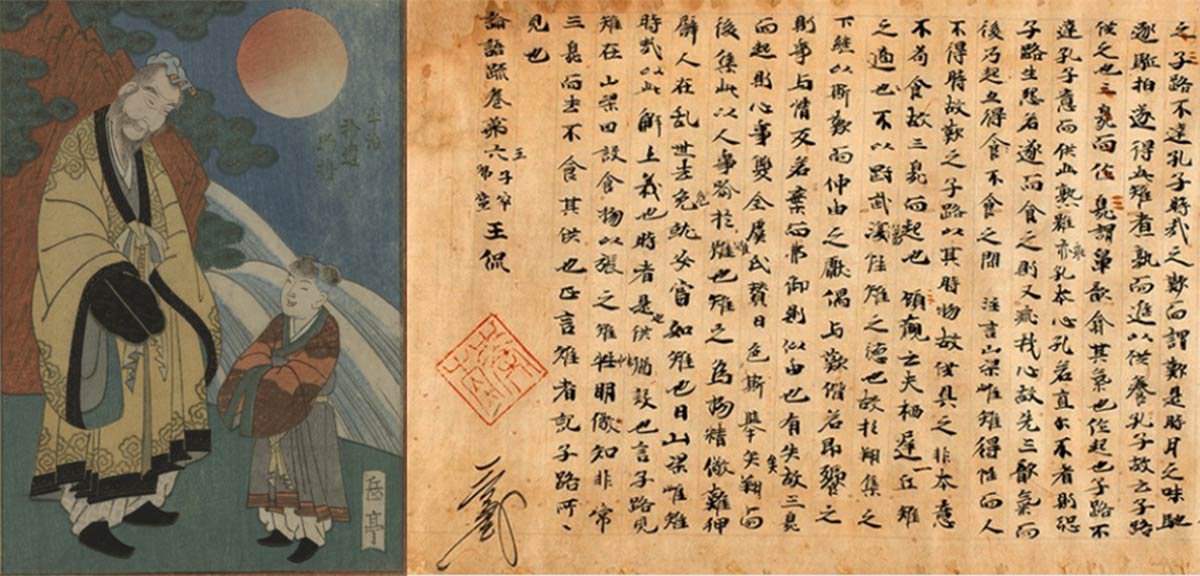 岳亭
之子路不達孔子時哉之歎而謂歎是時月之味馳
逐驅拍遂得此雉煮熟而進以供養孔子故云子路
供之也三臭而作臭謂鼻歆翕其氣也作起也子路不
達孔子意而供此熟雉乖孔本心孔若直尒不者則恐
子路生怨若遂而食之則又乖我心故先三歆氣而
後乃起得食不食之間 注言山梁雌雉得性而人
不得時故歎之子路以其時物故供具之非本意
不苟食故三臭而起也 顧歡云夫栖遅一丘雉
之適也不以剛武傷性雌之德也故於翔集之
下繼以斯歎而仲由之獻偶与歎偕若即饗之
則事与情反若棄而弗御則似由也有失故三臭
而起則心事雙全虞氏贊曰色斯舉矣翔而
後集此以人事喩於雉也雉之爲物精儆難狎
譬人在乱世去危就安當如雉也曰山梁雌雉
時哉以此解上義也時者是供猶設也言子路見
雉在山梁因設食物以張之雉性明儆知非常
三臭而去不食其供也正言雉者記子路所
見也
論語疏卷第六 王侃